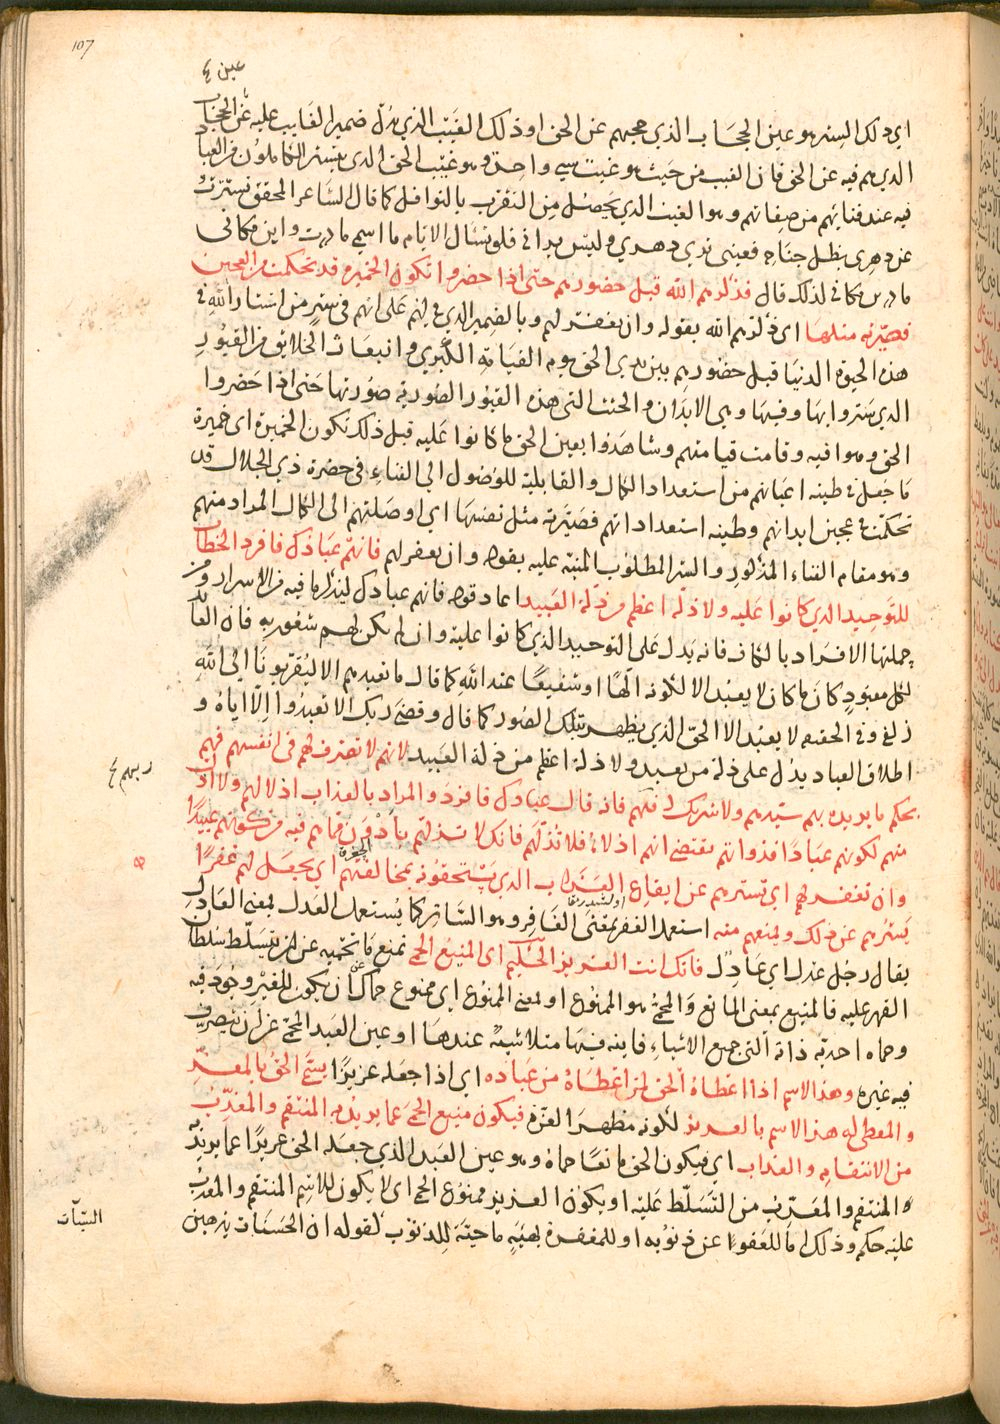 107
عين ٤
اي ذلك الستر هو عين الحجاب الذي حجبهم عن الحق او ذلك الغيب الذي يدل ضمير الغايب عليه عن الحجاب
الذي هم فيه عن الحق فان الغيب من حيث هو غيب شي واحد وهو غيب الحق الذي يستتر الكاملون من العباد
فيه عند فنائهم من صفاتهم وهو الغيب الذي يحصل من التقرب بالنوافل كما قال الشاعر المحقق تسترت
عن دهري بظل جناحه فعيني تري دهري وليس يراني فلو تسال الايام ما اسمي ما درت واين مكاني
ما درين مكاني لذلك قال فذكرهم الله قبل حضورهم حتى اذا حضروا تكون الخميرة قد تحكمت من العجين
فصيرته مثلها اي ذكرهم الله بقوله وان تغفر لهم وبالضمير الذي في لهم على انهم في ستر من استار الله في
هذه الحيوة الدنيا قبل حضورهم بين يدي الحق يوم القيامة الكبري وانبعاث الخلائق من القبور
الذي ستروا بها وفيها وهي الابدان والجثث التي هذه القبور الصورية صورتها حتى اذا حضروا
الحق وهوا فيه وقامت قيامتهم وشاهدوا بعين الحق ما كانوا عليه قبل ذلك تكون الخميرة اي خميرة
ما جعل في طينة اعيانهم من استعداد الكمال والقابلية للوصول الي الفناء في حضرة ذي الجلال قد
تحكمت في عجين ابدانهم وطينة استعداداتهم فصيرته مثل نفسها اي اوصلتهم الى الكمال المراد منهم
وهو مقام الفناء المذكور والستر المطلوب المنبه عليه بقوله وان تغفر لهم فانهم عبادك فافرد الخطاب
للتوحيد الذي كانوا عليه ولا ذلة اعظم من ذلة العبيد اعاد قوله فانهم عبادك ليذكر ما فيه من الاسرار ومن
جملتها الافراد بالكاف فانه يدل على التوحيد الذي كانوا عليه وان لم يكن لهم شعور به فان العابد
لكل معبود كان ما كان لا يعبد الا لكونه الها او شفيعا عند الله كما قال ما نعبدهم الا ليقربونا الى الله
زلفى وفي الحقيقة لا يعبد الا الحق الذي يظهر بتلك الصور كما قال وقضى ربك الا تعبدوا الا اياه و
اطلاق العباد يدل على ذلة من يعبد ولا ذلة اعظم من ذلة العبيد لانهم لا تصرف لهم في انفسهم فهم
ربهم ٤
بحكم ما يريده بهم سيدهم ولا شريك له فيهم فانه قال عبادك فافرد والمراد بالعذاب اذلالهم ولا اذل
منهم لكونهم عبادا فذواتهم تقتضي انهم اذلاء فلا تذلهم فانك لا تذلهم بادون مما هم فيه من كونهم عبيدا
وان تغفر لهم اي تسترهم عن ايقاع العذاب الذي يستحقونه بمخالفتهم اي يجعل لهم غفرا
يسترهم عن ذلك ويمنعهم منه استعمل الغفر بمعنى الغافر وهو الساتر كما يستعمل العدل بمعنى العادل
يقال رجل عدل اي عادل فانك انت العزيز الحكيم اي المنيع الحمى تمنع ما تحميه عن ان يتسلط سلطان
القهر عليه فالمنيع بمعنى المانع والحمى هو الممنوع او بمعنى الممنوع اي ممنوع حماك عن ان يكون للغير وجود فيه
وحماه احدية ذاته التي جميع الاشياء فانية فيها متلاشية عندها او عين العبد المحمي عن ان يتصرف
فيه غيره وهذا الاسم اذا اعطاه الحق لمن اعطاه من عباده اي اذا جعله عزيزا يسمى الحق بالمعز
والمعطى له هذا الاسم بالعزيز لكونه مظهر العزة فيكون منيع الحمى عما يريد به المنتقم والمعذب
من الانتقام والعذاب اي فيكون الحق مانعا حماه وهو عين العبد الذي جعله الحق عزيزا عما يريد به
المنتقم والمعذب من التسلط عليه او يكون العزيز ممنوع الحمى اي لا يكون للاسم المنتقم والمعذب
عليه حكم وذلك اما للعفو عن ذنوبه او للمغفرة بهيئة ماحية للذنوب لقوله ان الحسنات يذهبن
السيآت